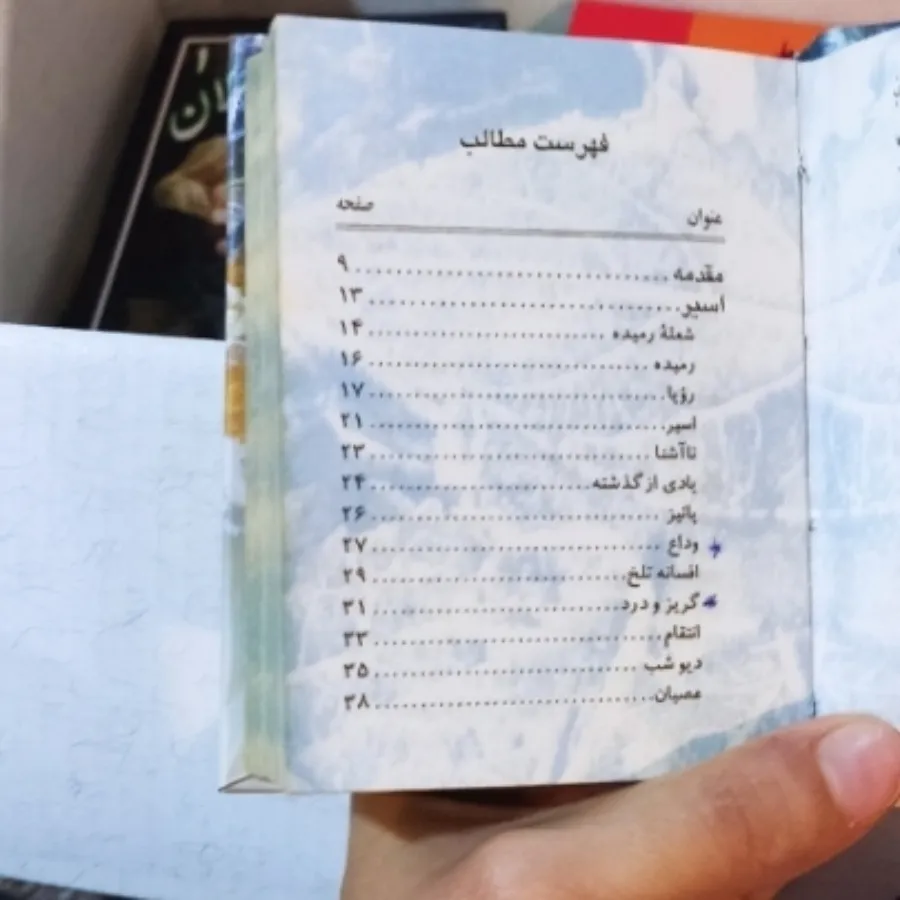 فهرست مطالب
عنوان صفحه
مقدمه ................................ ۹
اسیر ................................ ۱۳
شعلهٔ رمیده ................................ ۱۴
رمیده ................................ ۱۶
رؤیا ................................ ۱۷
اسیر ................................ ۲۱
ناآشنا ................................ ۲۳
یادی از گذشته ................................ ۲۴
پائیز ................................ ۲۶
وداع ................................ ۲۷
افسانه تلخ ................................ ۲۹
گریز و درد ................................ ۳۱
انتقام ................................ ۳۳
دیو شب ................................ ۳۵
عصیان ................................ ۳۸